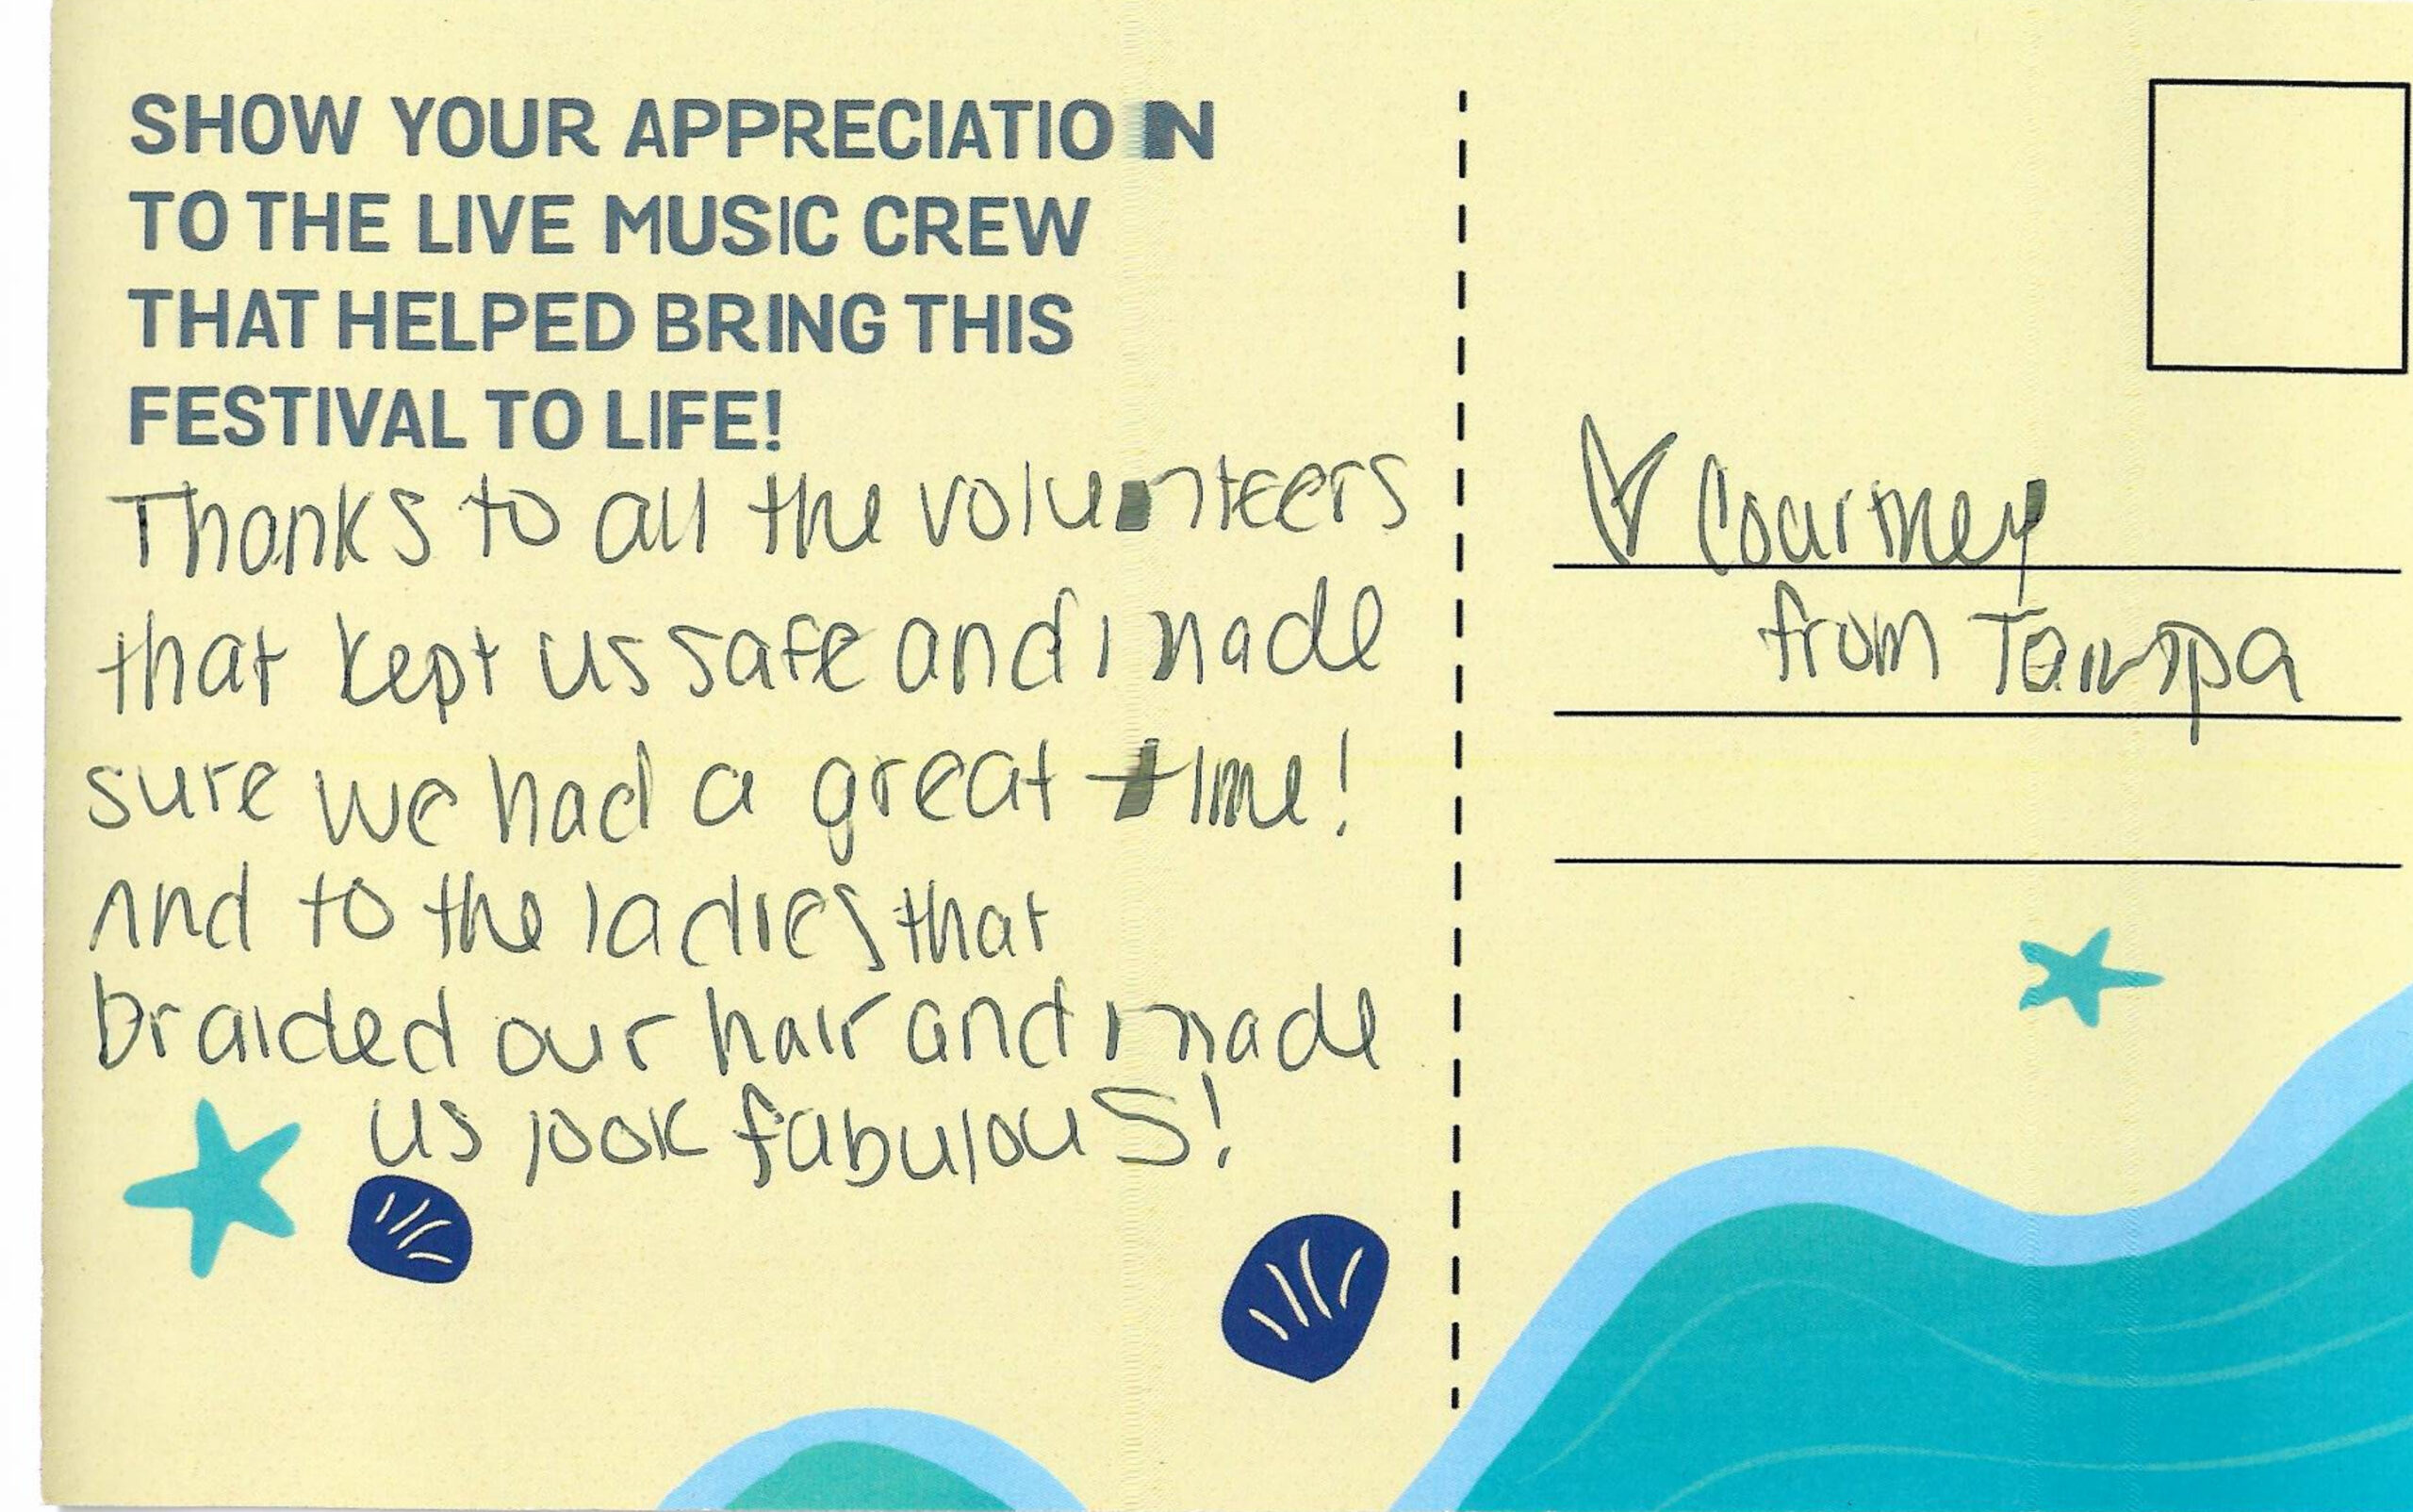 SHOW YOUR APPRECIATION
TO THE LIVE MUSIC CREW
THAT HELPED BRING THIS
FESTIVAL TO LIFE!
Thanks to all the volunteers
that kept us safe and made
sure we had a great time!
And to the ladies that
braided our hair and made
us look fabulous!
♡ Courtney
from Tampa